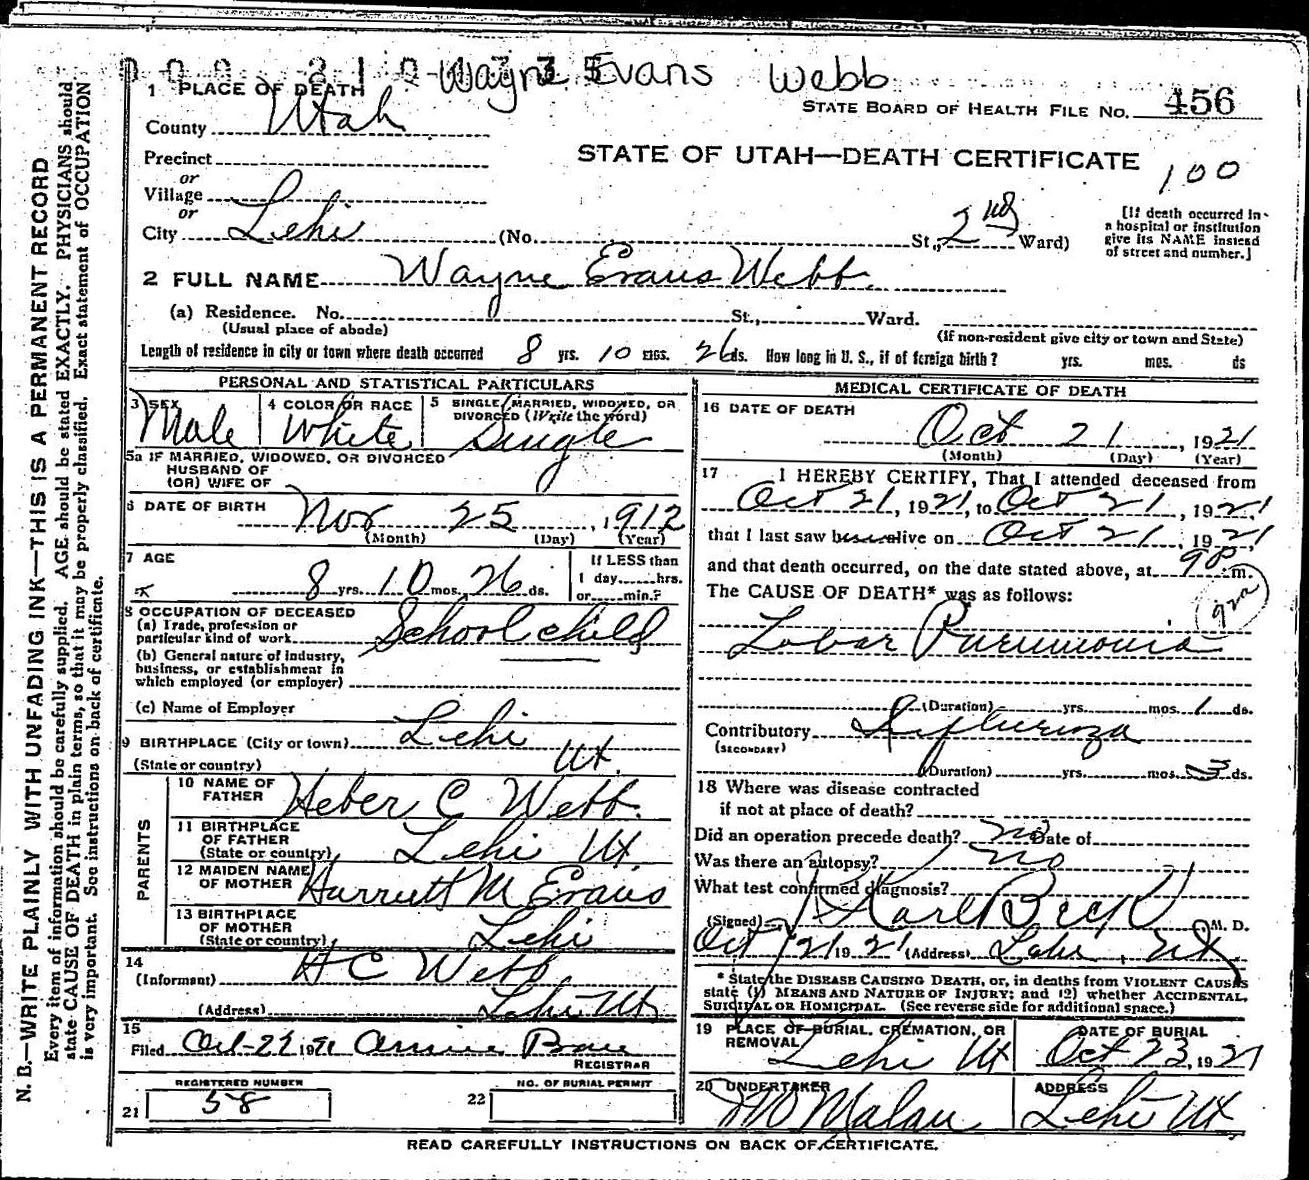 Wayne Evans Webb
1 PLACE OF DEATH
STATE BOARD OF HEALTH FILE No. 456
County Utah
STATE OF UTAH—DEATH CERTIFICATE 100
Precinct
or
Village
or
City Lehi (No. St., 2nd Ward)
[If death occurred in a hospital or institution give its NAME instead of street and number.]
2 FULL NAME Wayne Evans Webb
(a) Residence. No. St., Ward.
(Usual place of abode) (If non-resident give city or town and State)
Length of residence in city or town where death occurred 8 yrs. 10 mos. 26 ds. How long in U. S., if of foreign birth? yrs. mos. ds
PERSONAL AND STATISTICAL PARTICULARS
3 SEX 4 COLOR OR RACE 5 SINGLE, MARRIED, WIDOWED, OR DIVORCED (Write the word)
Male White Single
5a IF MARRIED, WIDOWED, OR DIVORCED
HUSBAND OF
(OR) WIFE OF
6 DATE OF BIRTH
Nov 25, 1912
(Month) (Day) (Year)
7 AGE
8 yrs. 10 mos. 26 ds.
If LESS than
1 day......hrs.
or......min.?
8 OCCUPATION OF DECEASED
(a) Trade, profession or
particular kind of work School child
(b) General nature of industry,
business, or establishment in
which employed (or employer)
(c) Name of Employer
9 BIRTHPLACE (City or town) Lehi
(State or country) Ut.
PARENTS
10 NAME OF FATHER Heber C Webb.
11 BIRTHPLACE OF FATHER
(State or country) Lehi Ut
12 MAIDEN NAME OF MOTHER Harriett M Evans
13 BIRTHPLACE OF MOTHER
(State or country) Lehi
14
(Informant) H C Webb
(Address) Lehi Ut
15
Filed Oct-22 1921
REGISTRAR
REGISTERED NUMBER
21 58
NO. OF BURIAL PERMIT
22
MEDICAL CERTIFICATE OF DEATH
16 DATE OF DEATH
Oct 21, 1921
(Month) (Day) (Year)
17 I HEREBY CERTIFY, That I attended deceased from
Oct 21, 1921, to Oct 21, 1921
that I last saw alive on Oct 21, 1921
and that death occurred, on the date stated above, at 9 P. m.
The CAUSE OF DEATH* was as follows:
Lobar Pneumonia
(Duration) yrs. mos. 1 ds.
Contributory Influenza
(SECONDARY)
(Duration) yrs. mos. 3 ds.
18 Where was disease contracted
if not at place of death?
Did an operation precede death? no Date of
Was there an autopsy? no
What test confirmed diagnosis?
(Signed) Karl Beck, M. D.
Oct 21 1921 (Address) Lehi, Ut
* State the DISEASE CAUSING DEATH, or, in deaths from VIOLENT CAUSES
state (1) MEANS AND NATURE OF INJURY; and (2) whether ACCIDENTAL,
SUICIDAL OR HOMICIDAL. (See reverse side for additional space.)
19 PLACE OF BURIAL, CREMATION, OR REMOVAL DATE OF BURIAL
Lehi Ut Oct 23, 1921
20 UNDERTAKER ADDRESS
Malan Lehi Ut
READ CAREFULLY INSTRUCTIONS ON BACK OF CERTIFICATE.
N. B.—WRITE PLAINLY WITH UNFADING INK—THIS IS A PERMANENT RECORD
Every item of information should be carefully supplied. AGE should be stated EXACTLY. PHYSICIANS should
state CAUSE OF DEATH in plain terms, so that it may be properly classified. Exact statement of OCCUPATION
is very important. See instructions on back of certificate.